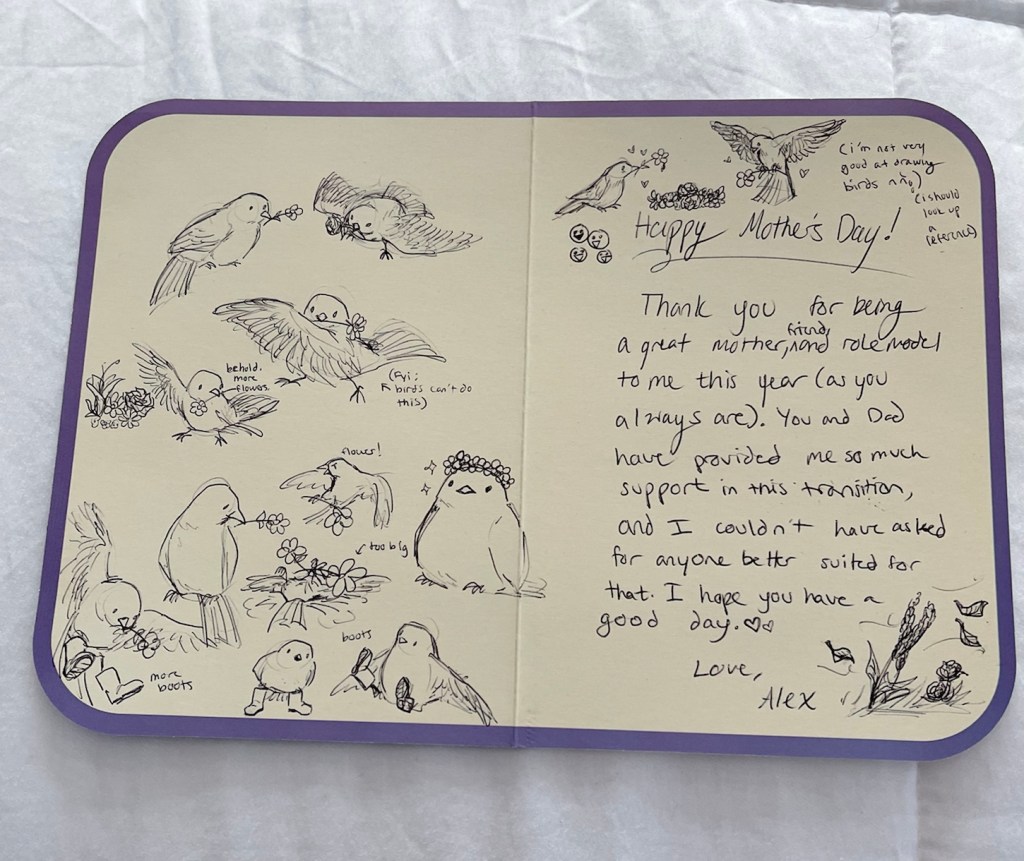 behold.
more
flowers.
(fyi;
birds can't do
this)
flower!
too big
boots
more
boots
(i'm not very
good at drawing
birds ^^;)
(i should
look up
a
reference)
Happy Mother's Day!
Thank you for being
a great mother, friend, and role model
to me this year (as you
always are). You and Dad
have provided me so much
support in this transition,
and I couldn't have asked
for anyone better suited for
that. I hope you have a
good day.♡♡
Love,
Alex